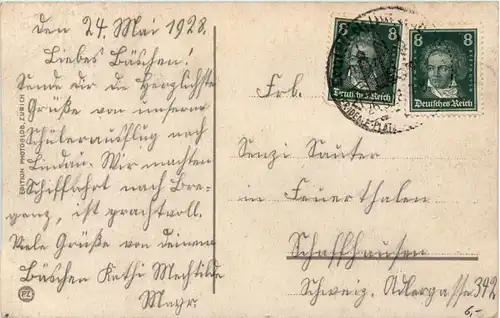 den 24. Mai 1928.
Liebes Bäschen!
Sende dir die herzlichste
Grüße von unserm
Schülerausflug nach
Lindau. Wir machten
Schiffahrt nach Bre-
genz, ist prachtvoll.
Viele Grüße von deinem
Bäschen Kathi Mechtilde
Mayr
EDITION PHOTOGLOB, ZÜRICH
PZ
8
Deutsches Reich
8
Deutsches Reich
Frl.
Senzi Sauter
in Feuerthalen
Schaffhausen
Schweiz. Adlergasse 342
6,-